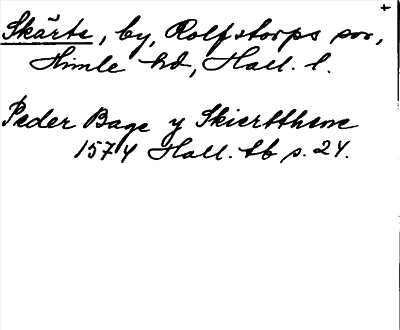 +
Skärte, by, Rolfstorps sn,
Himle hd, Hall. l.
Peder Bage y Skiertthe
1574 Hall. tb s. 24.